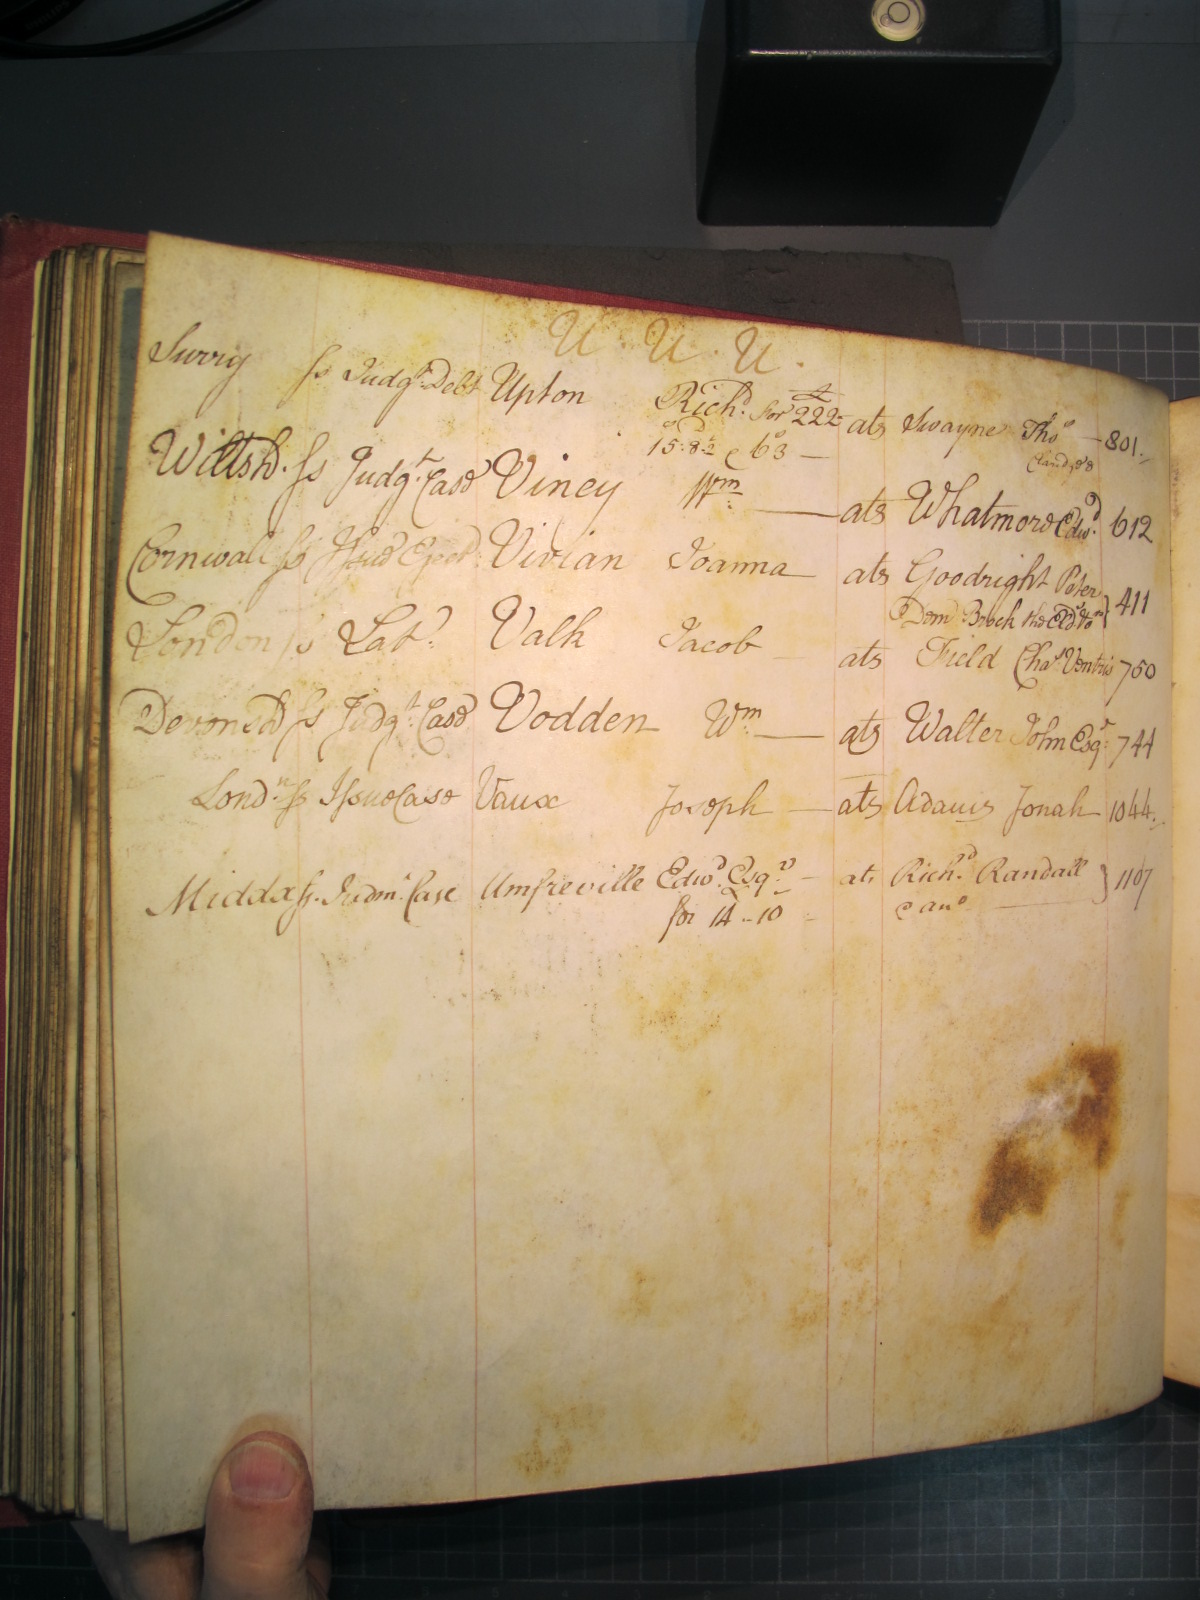 U . U . U .
Surry ss Judgt Debt Upton Richd for £ 222 ats Swayne Thos 801
15: 8: 2 & 63
Wiltsh. ss Judgt Case Viney Wm ats Whatmore Edwd 612
Cornwall ss Issue Eject Vivian Joanna ats Goodright Peter
Dem Brock the 411
London ss Lat. Valk Jacob ats Field Chas Ventris 750
Devonsh ss Judgt Case Vodden Wm ats Walter John Esqr 744
Lond.n ss Issue Case Vaux Joseph ats Adams Jonah 1044
Middx ss. Judmt Case Umfreville Edwd Esqr ats Richd Randall
for 14 .. 10 & ano 1107